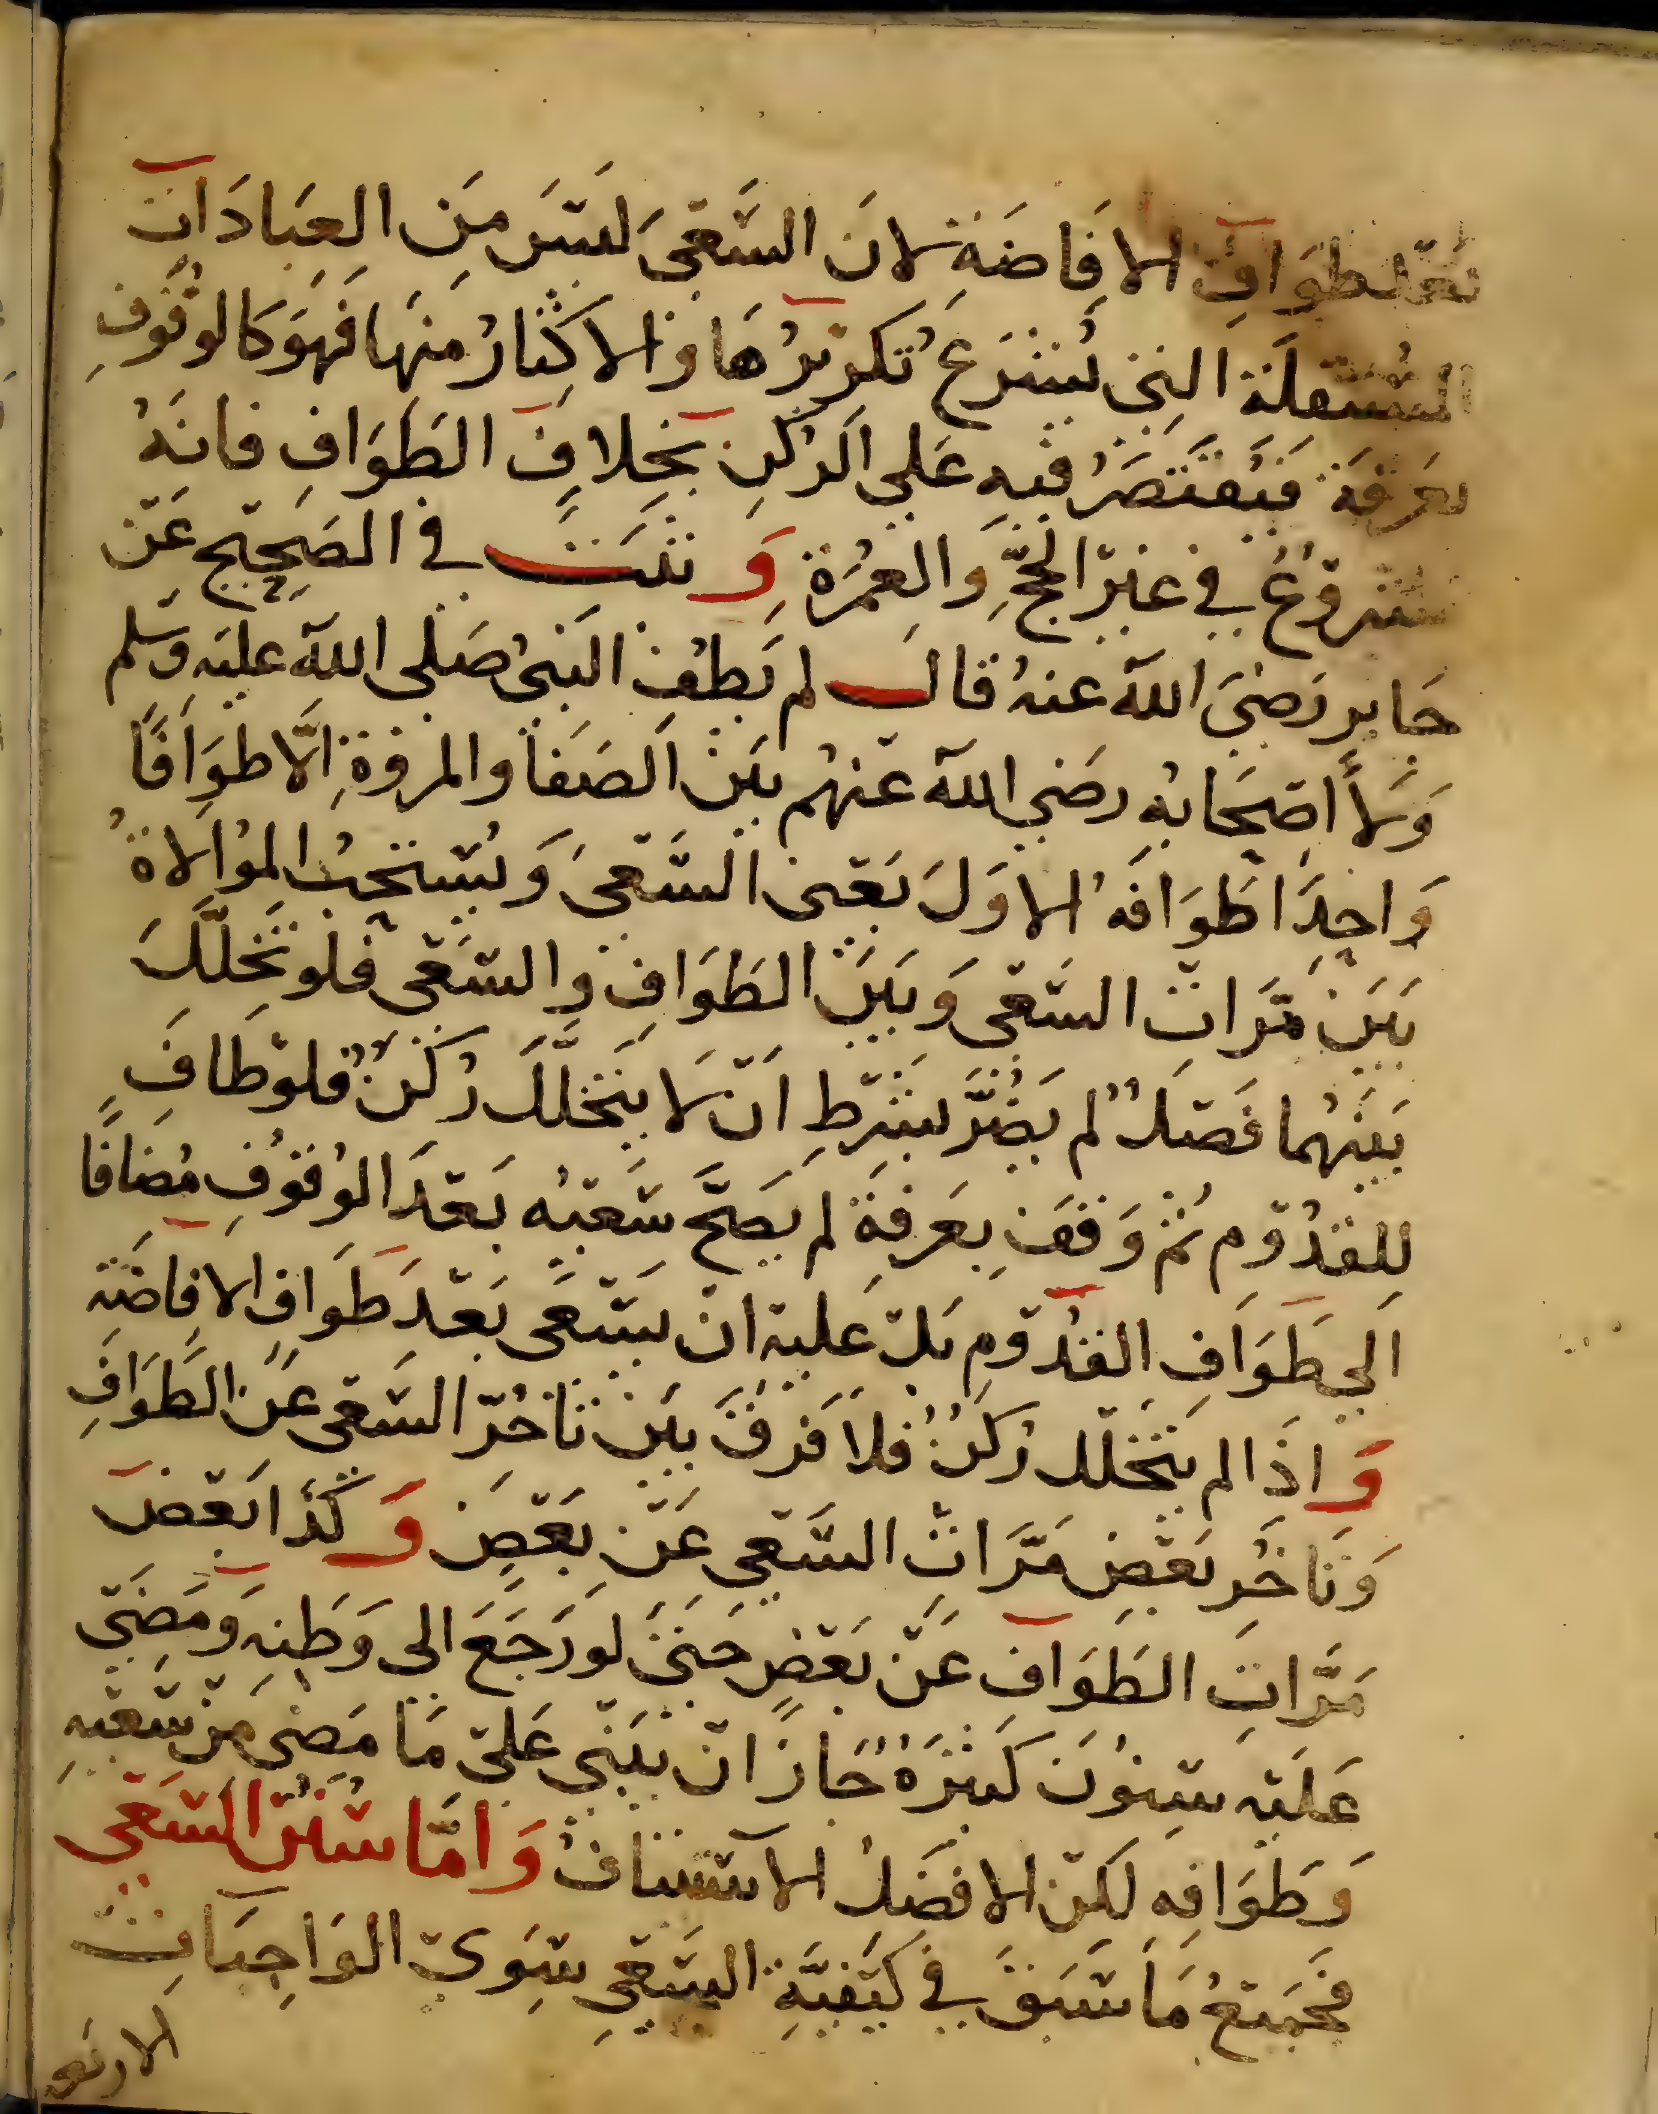 بَعْدَ طَوَافِ الافَاضَةِ لانَ السَّعْىَ لَيْسَ مِنَ العِبَادَاتِ
المُسْتَقِلَةِ التِى يُشْرَعُ تكرِيرُهَا وَالاكْثَارُ مِنهَا فَهُوَ كَالوُقُوفِ
بعَرَفَةَ فَيُقتَصَرُ فيهِ عَلى الرُكْنِ بخِلافِ الطَوَافِ فانَهُ
مشْروْعٌ في غيْرِ الحَجِّ وَالعُمْرَةِ وَثبَتَ في الصَحِيْحِ عَنْ
جَابِر رَضىَ اللهُ عنهُ قالَ لم يَطُفِ النَبىُ صَلى اللهُ عليْهِ وَسَلم
وَلاَ اصْحَابُهِ رضَي اللهُ عَنْهُم بَيْنَ الصَفَا وَالمروَةِ الَّا طَوَافًا
وَاحِدًا طَوَافَهُ الاوَلَ يَعْنى السَّعْىَ وَيُسْتحَبُ المُوَالاةُ
بَيْنَ مَرَاتِ السَّعْى وَبَيْنَ الطَوَافِ وَالسَّعْى فلَو تَخَلَّلَ
بَيْنَهُما فَصْلٌ لم يَضُرَّ بشَرْطِ انْ لَا يَتَخَلَّلَ رُكْنٌ فلَوْ طَافَ
لِلقُدُوْمِ ثُمَ وَقَفَ بِعَرفَةَ لم يَصَحَّ سَعْيُه بَعْدَ الوُقوُفِ مُضَافًا
اَلى طَوَافِ القُدُوْمِ بَلْ عَليْهِ انْ يَسْعَى بَعْدَ طَوَافِ الافاضَةِ
وَاذَا لم يَتَخَلَّلْ رُكنٌ فلاَ فَرْقَ بَيْنَ تَاخُرِ السَّعْى عَنَ الطَوَافِ
وَتَاخُرِ بَعْضِ مَرَّاتِ السَّعْىِ عَنْ بَعْضٍ وَكَذَا بَعْضُ
مَرَّاتِ الطَوَافِ عَنْ بَعْضٍ حَتىَ لو رَجَعَ الى وَطَنِهِ وَمَضَتْ
عَلَيْهِ سنُونَ كَثيرَةٌ جَازَ انْ يَبْنَى عَلىْ مَا مَضىَ مِنْ سَعْيهِ
وَطَوَافِهِ لكِنْ الافضَلُ الاسْتئنافُ وَامَّا سُنَنُ السَّعْى
فجَمِيْعُ مَا سَبَقَ في كَيْفِيَّةِ السَّعْى سِوَىْ الوَاجِبَاتِ
الاربَعِ